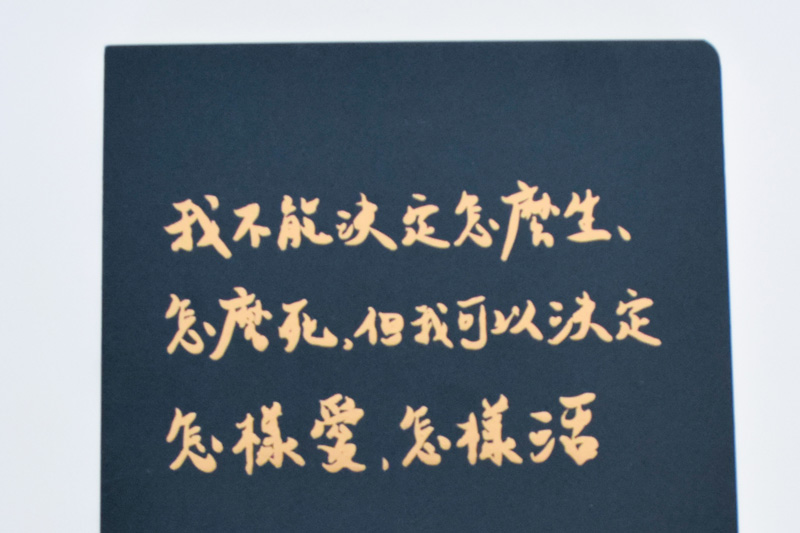 我不能決定怎麼生、
怎麼死,但我可以決定
怎樣愛,怎樣活